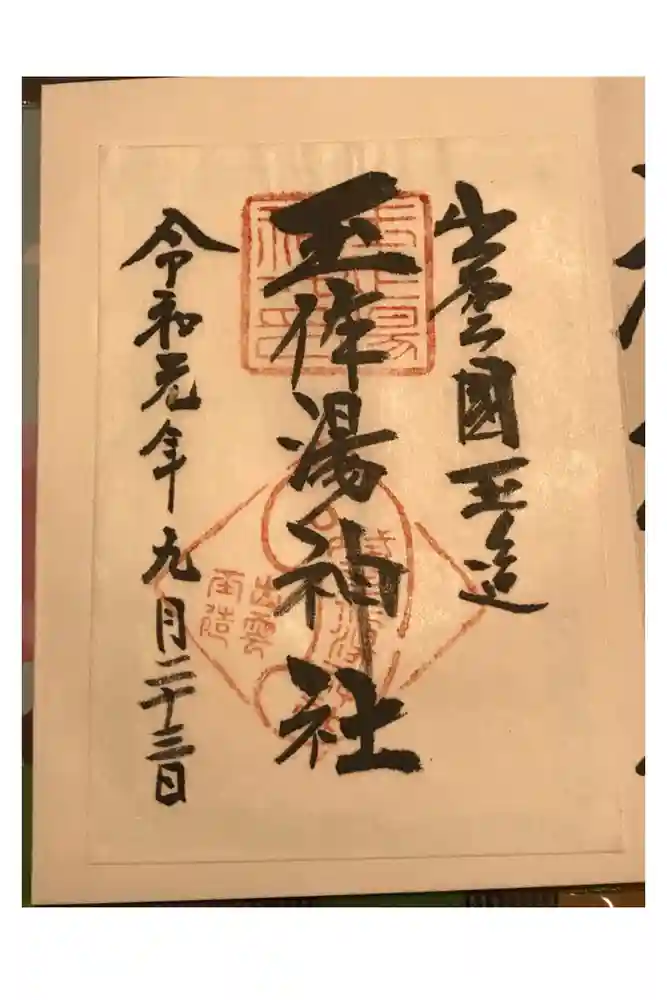 出雲國玉造
玉作湯神社
令和元年九月二十三日
玉作湯
神社印
出雲
玉造